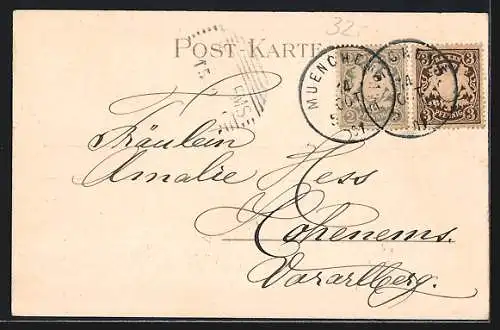 32.-
POST-KARTE
MUENCHEN
3 3
PFENNIG
Fräulein
Amalie Hess
Hohenems.
Vorarlberg.